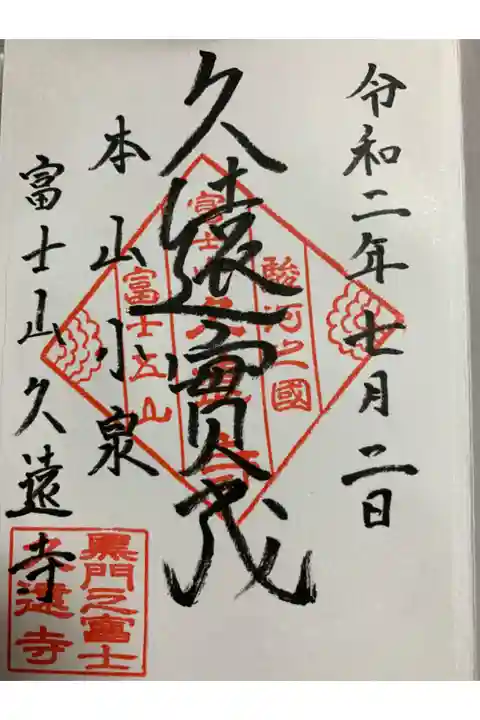 令和二年七月二日
久遠實成
本山小泉
富士山久遠寺
駿河之國
富士五山
黒門之富士
久遠寺